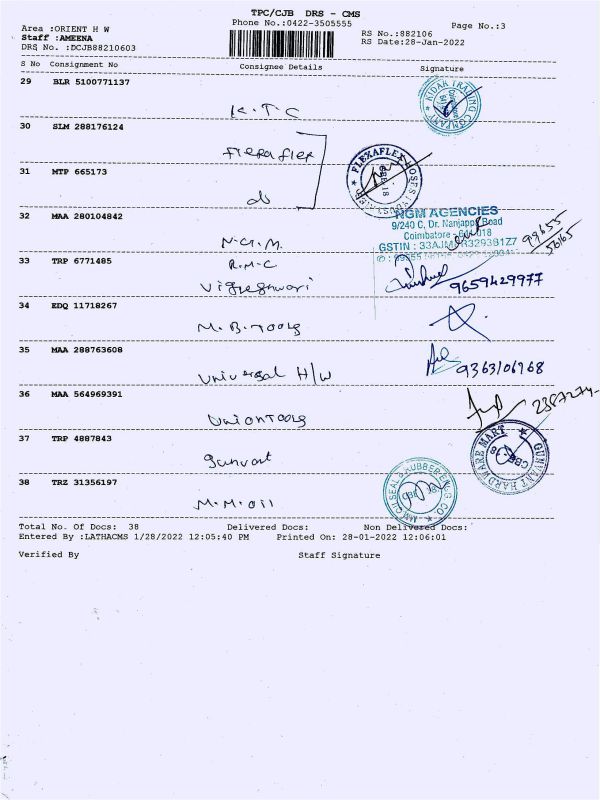 TPC/CJB DRS - CMS
Phone No.:0422-3505555
Page No.:3
Area :ORIENT H W
Staff :AMEENA
DRS No. :DCJB88210603
RS No.:882106
RS Date:28-Jan-2022
S No Consignment No Consignee Details Signature
29 BLR 5100771137
K.T.C
KIDAR TRADING COMPANY
30 SLM 288176124
Flexaflex
FLEXAFLEX HOSES
31 MTP 665173
do
32 MAA 280104842
N.G.M.
NGM AGENCIES
9/240 C, Dr. Nanjappa Road
Coimbatore - 641 018
99655
56165
33 TRP 6771485
R.M.C
Vigneshwari
9659429977
34 EDQ 11718267
M.B.Tools
35 MAA 288763608
Universal H/W
9363106968
36 MAA 564969391
Union Tools
37 TRP 4887843
Gunvant
GUNVANT HARDWARE MART
38 TRZ 31356197
M.M.Oil
M.M. OIL SEAL & RUBBER ENGG CO.
Total No. Of Docs: 38 Delivered Docs: Non Delivered Docs:
Entered By :LATHACMS 1/28/2022 12:05:40 PM Printed On: 28-01-2022 12:06:01
Verified By Staff Signature